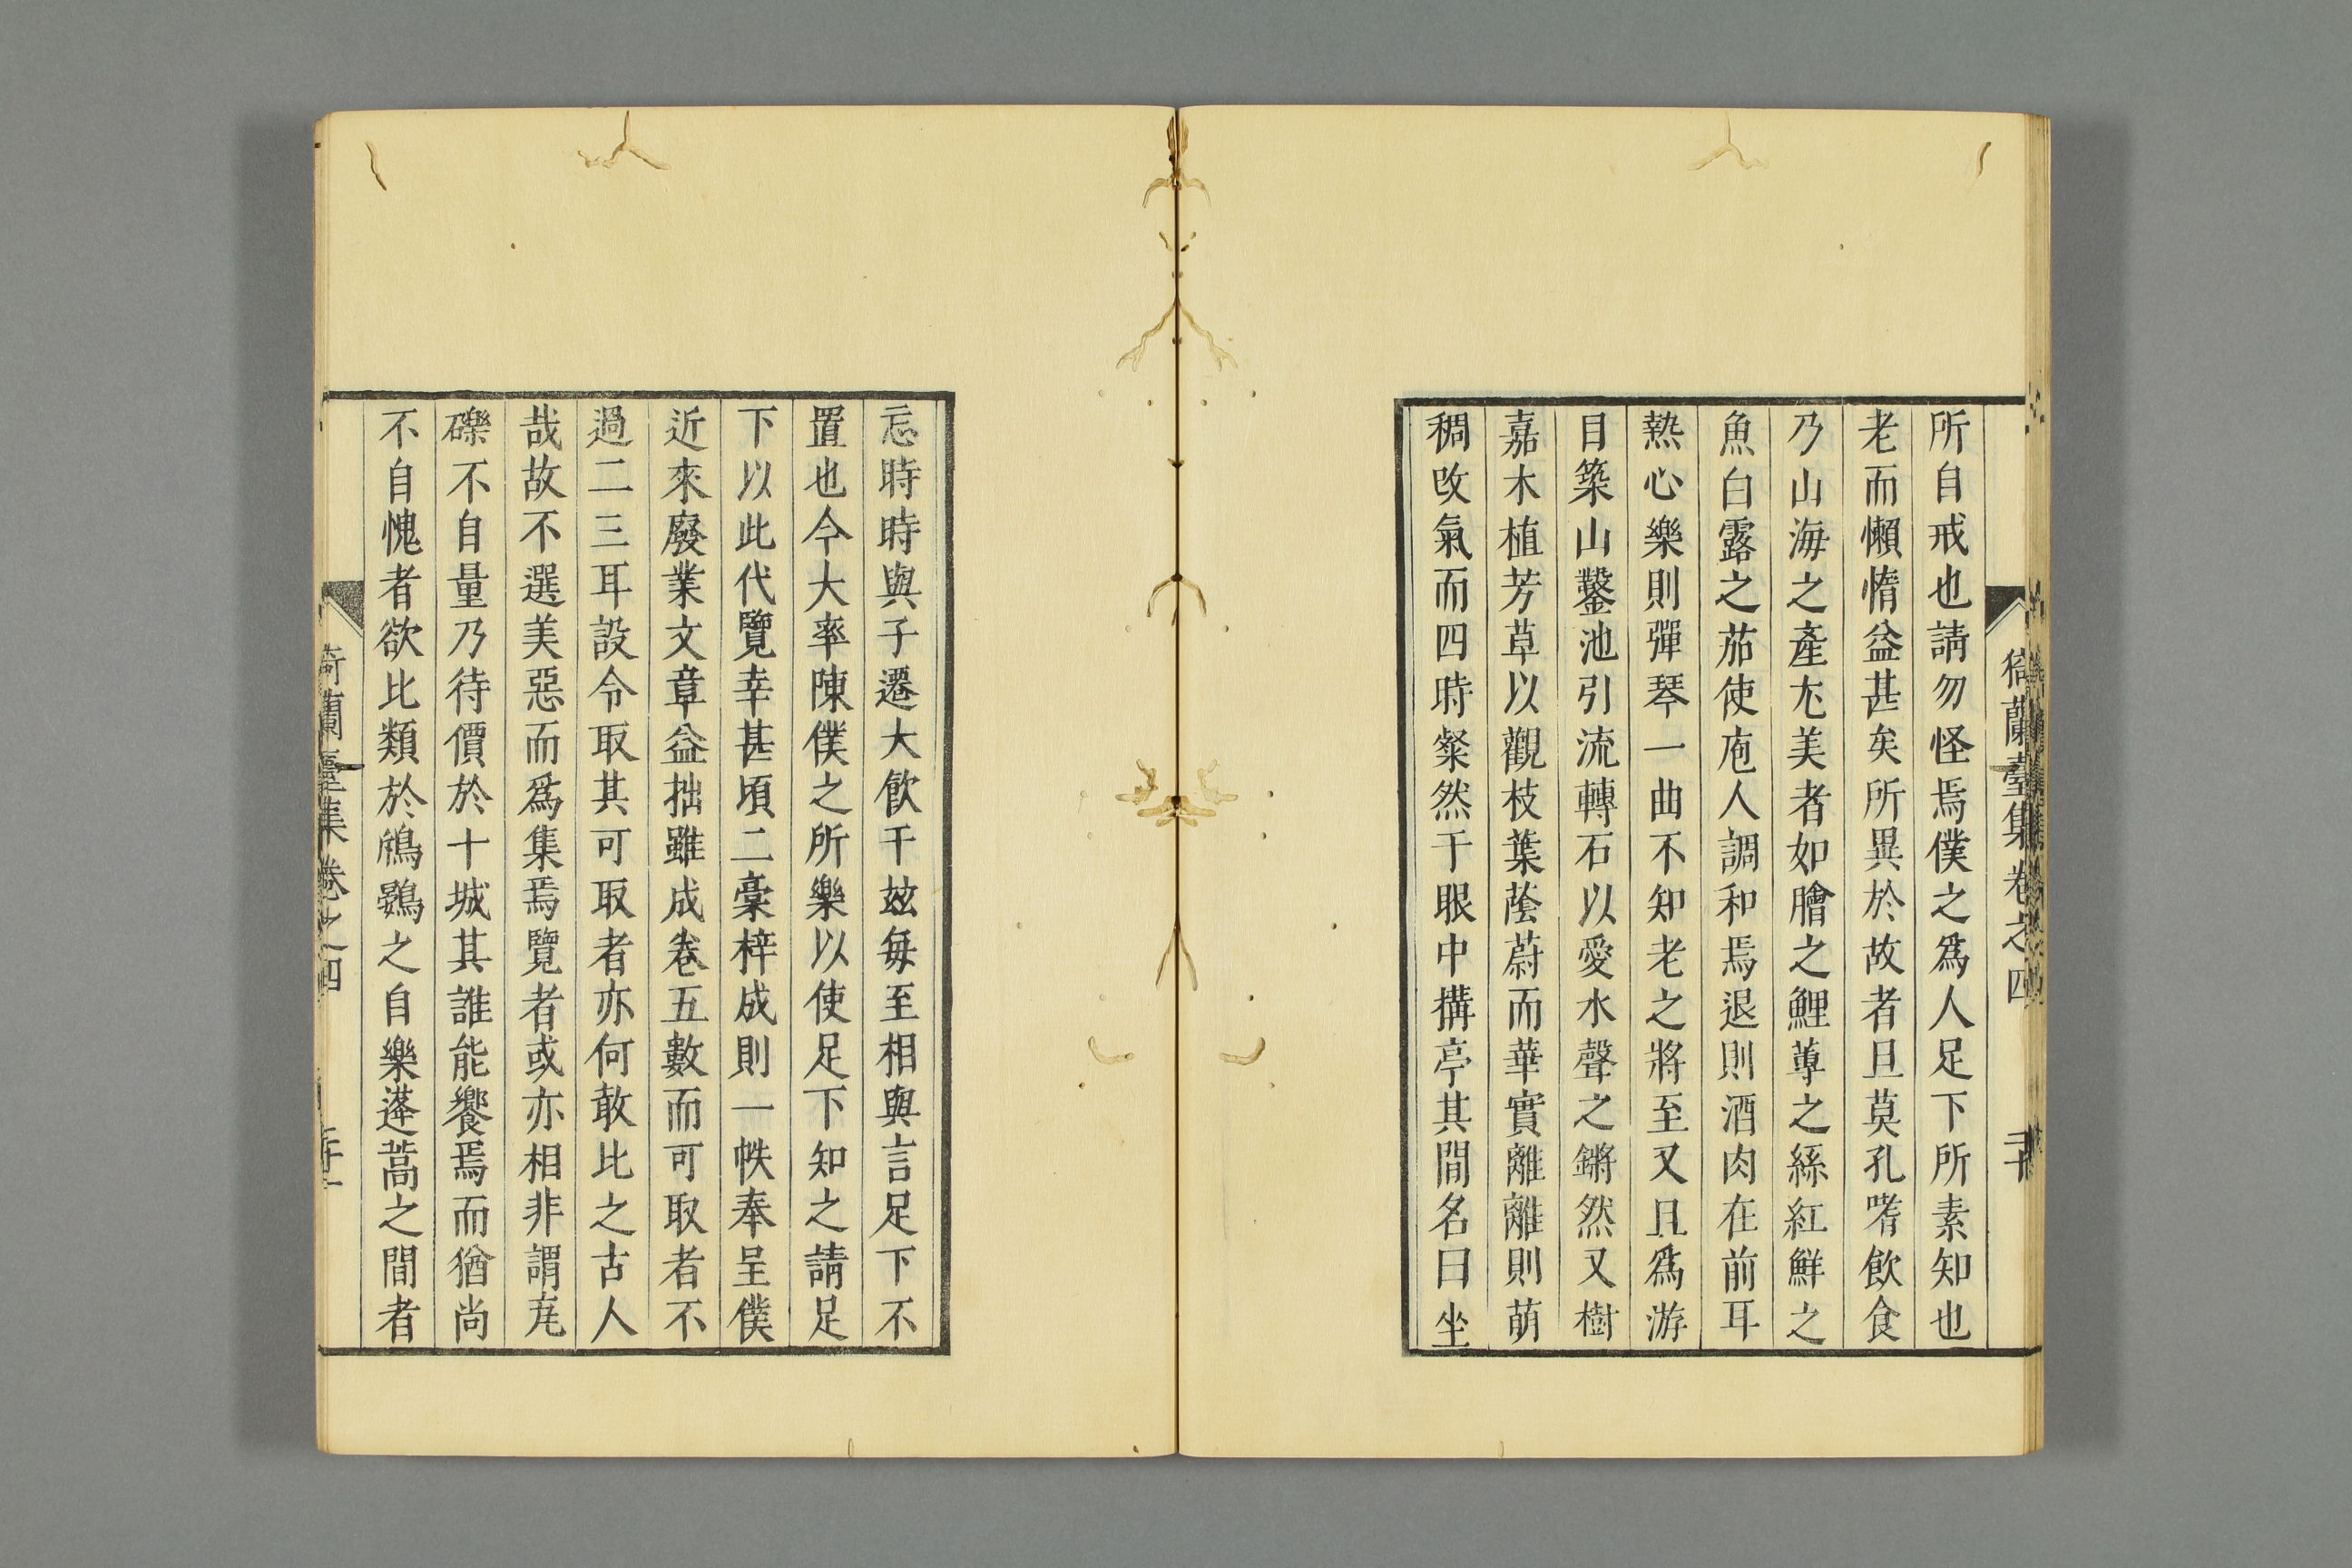 所自戒也請勿怪焉僕之爲人足下所素知也
老而懶惰益甚矣所異於故者旦莫孔嗜飲食
乃山海之產尤美者如膾之鯉蓴之絲紅鮮之
魚白露之茄使庖人調和焉退則酒肉在前耳
熱心樂則彈琴一曲不知老之將至又且爲游
目築山鑿池引流轉石以愛水聲之鏘然又樹
嘉木植芳草以觀枝葉蔭蔚而華實離離則萌
稠改氣而四時粲然于眼中搆亭其間名曰坐
忘時時與子遷大飲于玆每至相與言足下不
置也今大率陳僕之所樂以使足下知之請足
下以此代覽幸甚頃二稾梓成則一帙奉呈僕
近來廢業文章益拙雖成卷五數而可取者不
過二三耳設令取其可取者亦何敢比之古人
哉故不選美惡而爲集焉覽者或亦相非謂瓦
礫不自量乃待價於十城其誰能饗焉而猶尚
不自愧者欲比類於鴳鷃之自樂蓬蒿之間者
蘭臺集卷之四